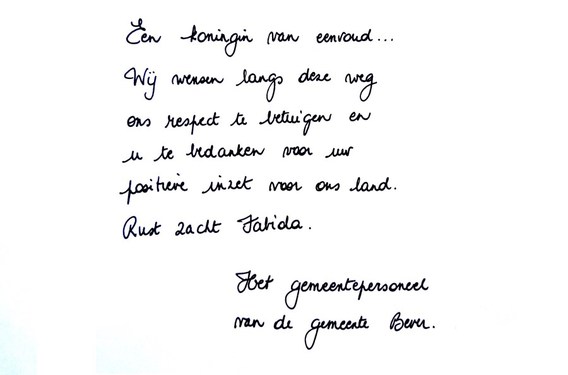 Een koningin van eenvoud...
Wij wensen langs deze weg
ons respect te betuigen en
u te bedanken voor uw
positieve inzet voor ons land.
Rust zacht Fabiola.
Het gemeentepersoneel
van de gemeente Bever.